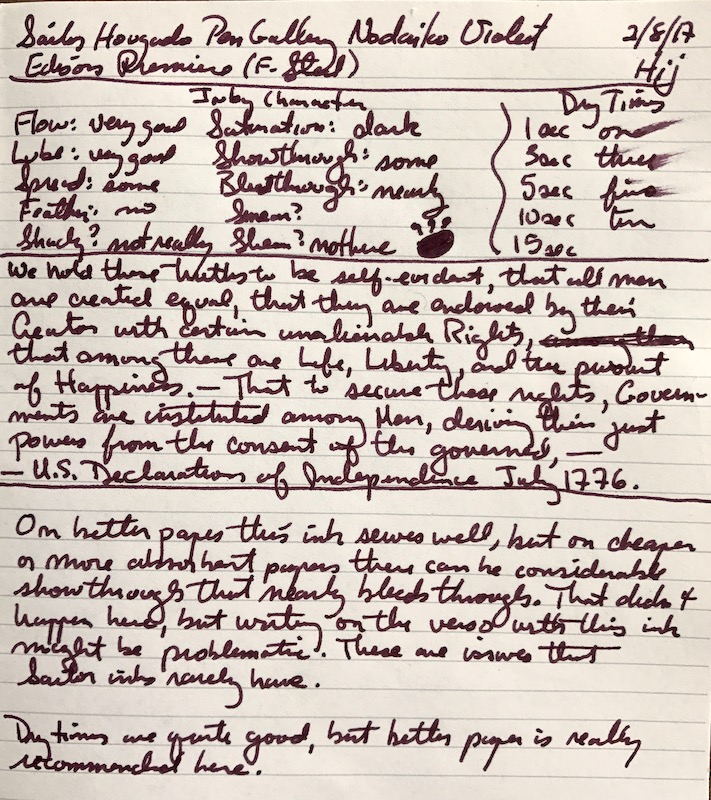 Sailor Hougado Pen Gallery Nodaiko Violet 2/8/17
Edison Premiere (F-Steel) Hij
Inky Character Dry Times
Flow: very good Saturation: dark 1 sec one
Lube: very good Showthrough: some 3 sec three
Spread: some Bleedthrough: nearly 5 sec five
Feather: no Smear? 10 sec ten
Shady? not really Sheen? not here 15 sec
We hold these truths to be self-evident, that all men
are created equal, that they are endowed by their
Creator with certain unalienable Rights, among them
that among these are Life, Liberty, and the pursuit
of Happiness. — That to secure these rights, Govern-
ments are instituted among Men, deriving their just
powers from the consent of the governed, —
— U.S. Declaration of Independence July 1776.
On better papers this ink serves well, but on cheaper
or more absorbent papers there can be considerable
showthrough that nearly bleedsthrough. That didn't
happen here, but writing on the verso with this ink
might be problematic. These are issues that
Sailor inks rarely have.
Dry times are quite good, but better paper is really
recommended here.